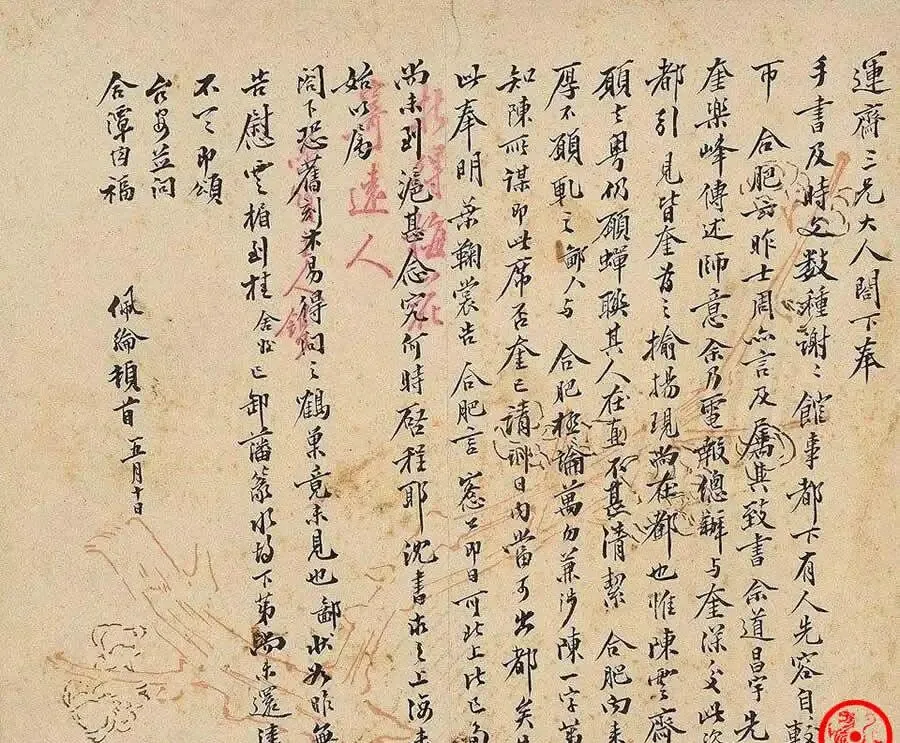 運齋三兄大人閣下奉
手書及時文數種謝〻館事都下有人先容自
市 合肥昨士周亦言及屬其致書余道昌宇先
奎樂峰傳述師意余乃電報總辦与奎深交此次
都引見皆奎為之揄揚現尚在都也惟陳雲齋
願去粵仍願蟬聯其人在直不甚清潔 合肥向來
厚不願軋之鄙人与 合肥極論萬勿兼涉陳一字
知陳所謀即此席否奎已請訓日内當可出都矣
此奉明葉鞠裳告 合肥言 窓公即日可北上此已
尚未到滬甚念究何時啟程耶沈書求之上海未
始以屬
閣下恐舊刻不易得詢之鶴巢竟未見也鄙狀如昨無
告慰雲楣到桂舍已卸藩篆下第尚未還
不一即頌
台安並問
合潭百福
佩綸頓首五月十日
折得梅花
寄遠人